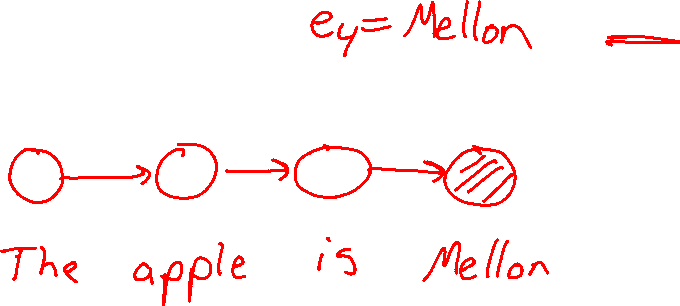 e₄= Mellon
The apple is Mellon